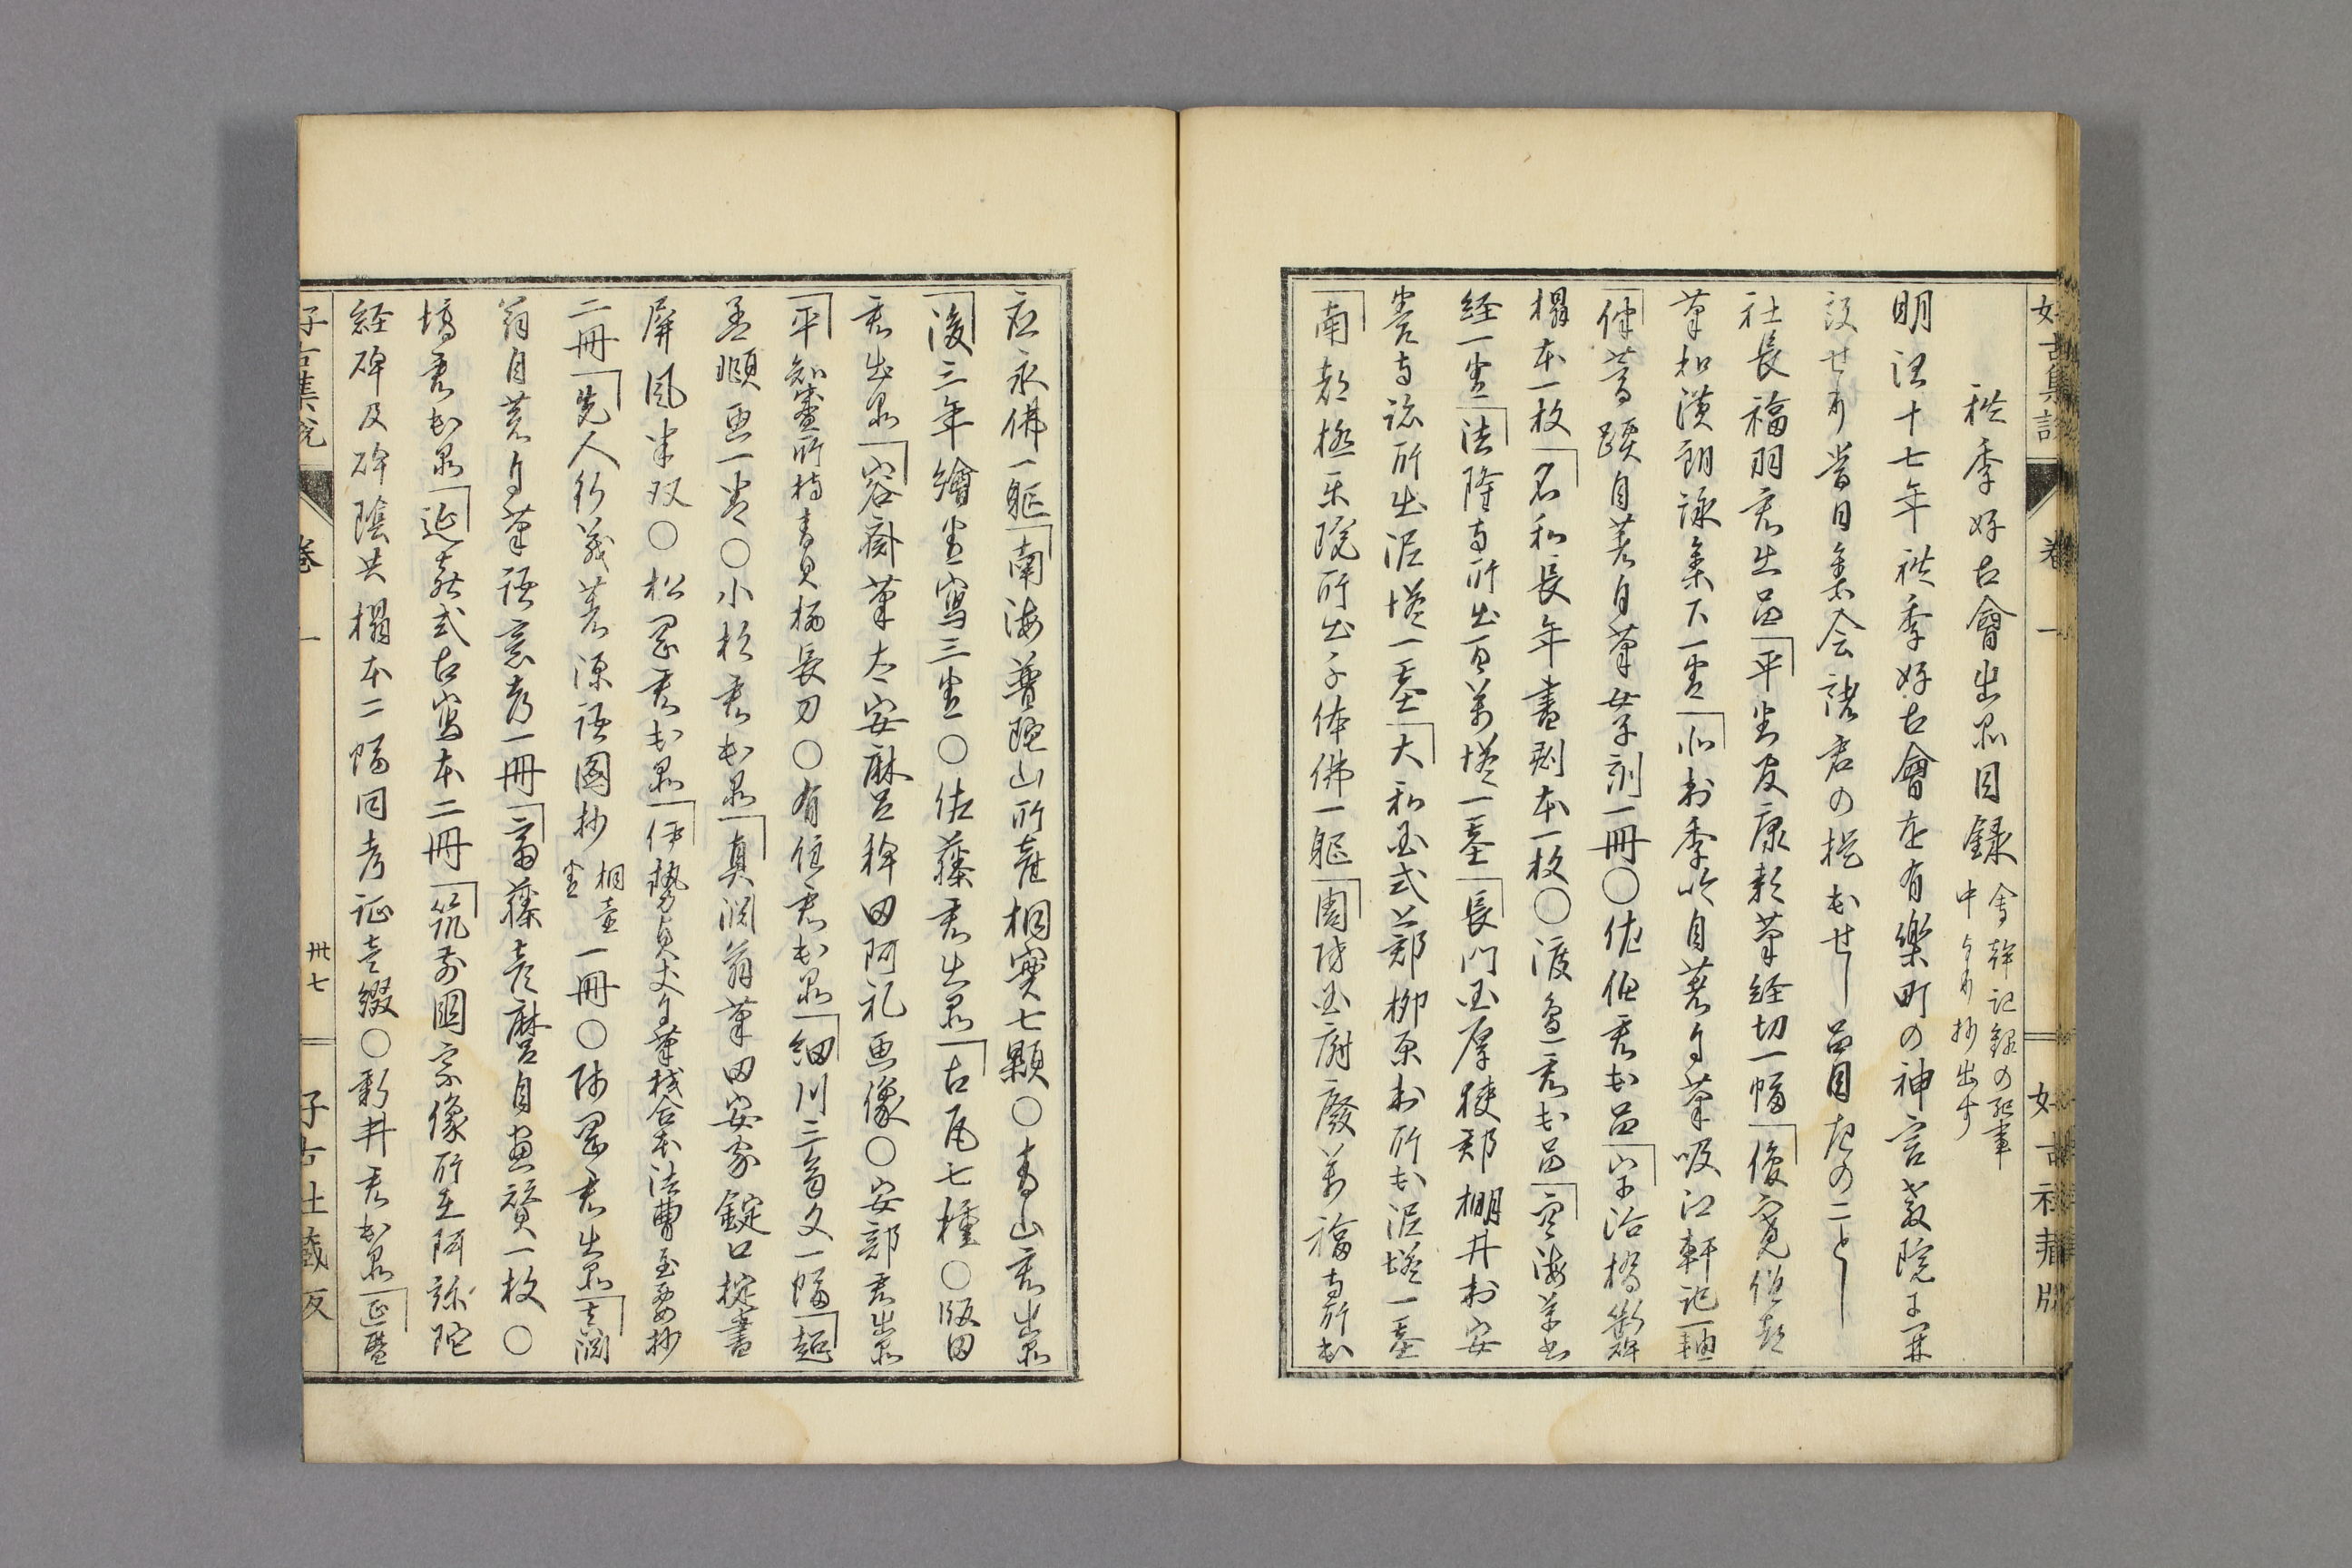 好古集説
卷一
好古社藏版
秋季好古會出品目録
會幹記録の
中より抄出す
明治十七年秋季好古會を有樂町の神宮教院に
設せり當日集会諸君の携出せし品目左のことし
社長福羽君出品平判官康頼筆経切一幅俊寛僧都
筆和漢朗詠集下一巻北村季吟自著自筆吸江軒記一軸
自著自筆女子訓一冊〇佐伯君出品宇治橋斷碑
搨本一枚名和長年畫剔本一枚〇渡邉君出品空海筆
経一巻法隆寺所出百萬塔一基長門国厚狭郡棚井村安
養寺所出泥塔一基大和国式上郡柳原村所出泥塔一基
南都極楽院所出千体佛一躯周防国府廢萬福寺所出
應永佛一躯南海普陀山所産桐實七顆〇青山君出品
後三年繪巻寫三巻〇佐藤君出品古瓦七種〇版田
君出品容斎筆太安麻呂稗田阿礼画像〇安部君出品
平知盛所持青貝柄長刀〇有住君出品細川三斎文一幅趙
孟頫画一巻〇小杉君出品真淵翁筆田安家錠口掟書
屏風半双〇松岡君出品伊勢貞丈自筆校合本法曹至要抄
二冊先人行義著源語圖抄桐壺巻一冊〇片岡君出品真淵
翁自著自筆語意考一冊齋藤彦麿自画賛一枚〇
塙君出品延喜式古寫本二冊筑前國宗像所在阿弥陀
経碑及碑陰共搨本二幅同考証壹綴〇新井君出品延暦
好古集説
卷一
卅七
好古社藏版